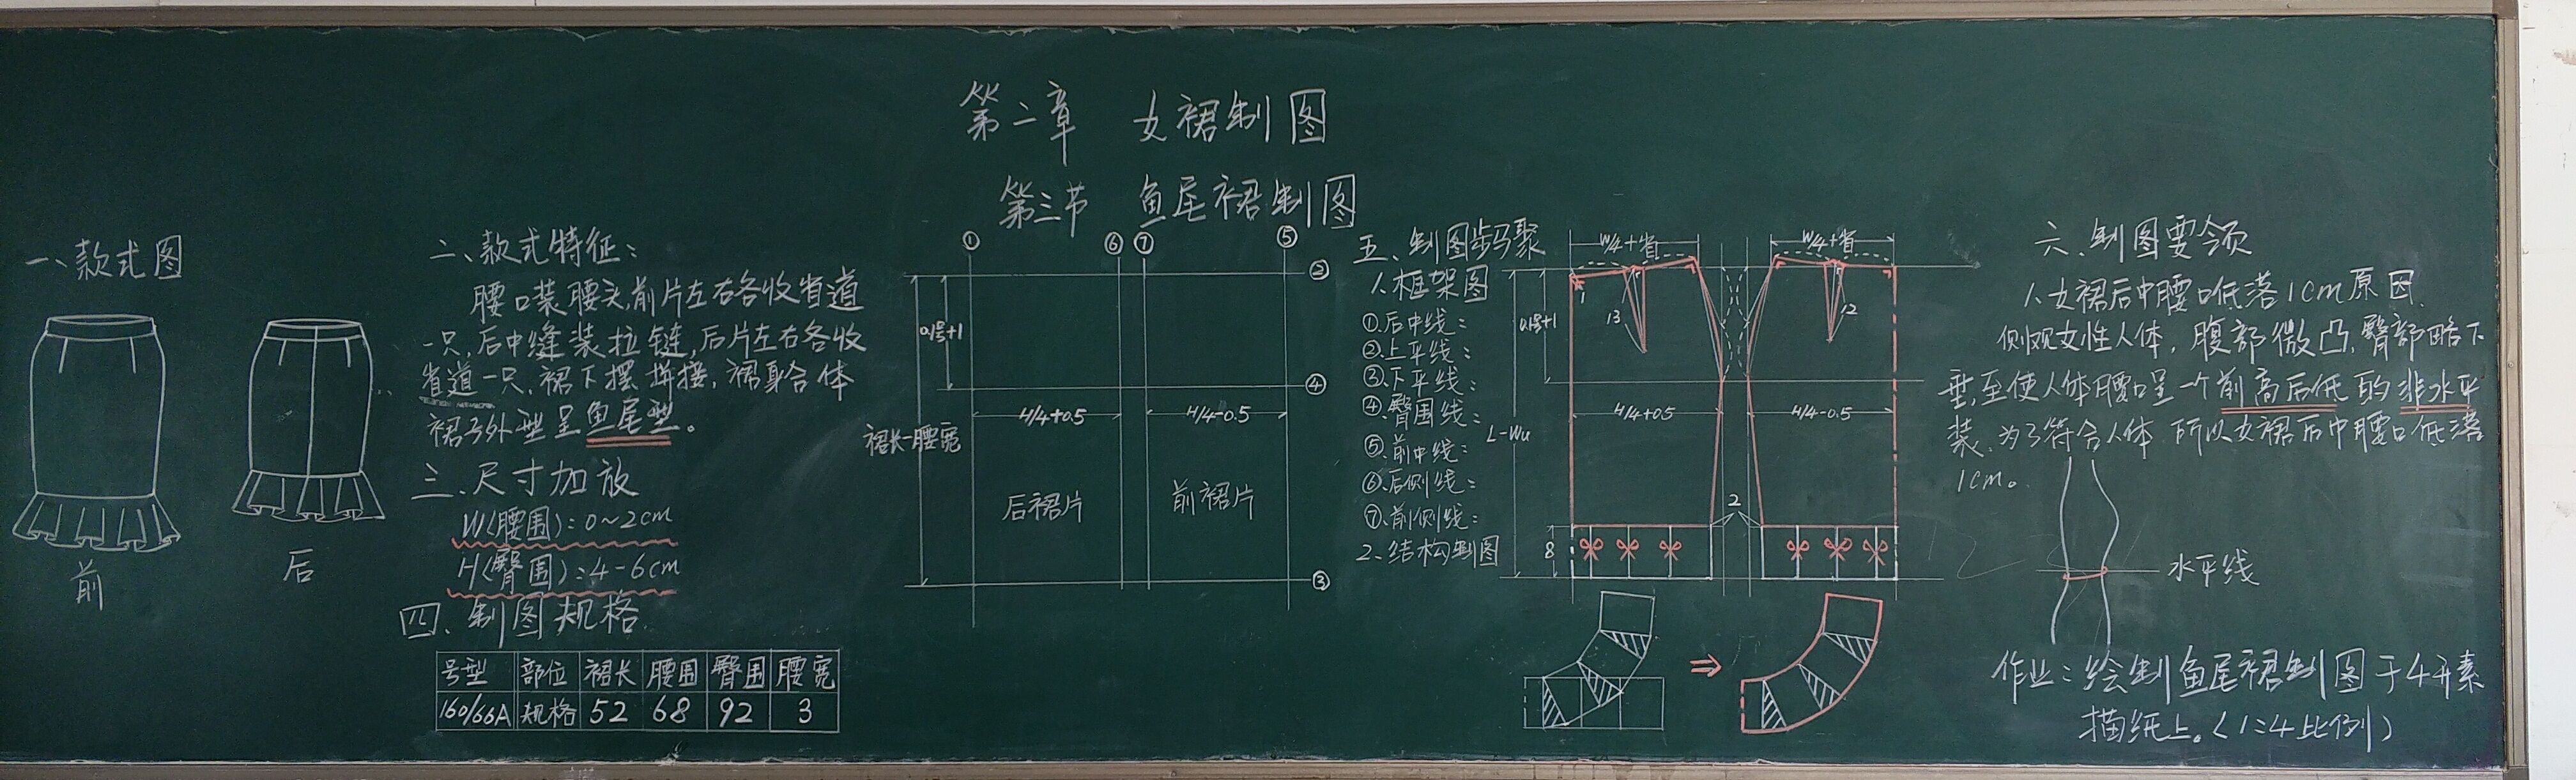 第二章 女裙制图
第三节 鱼尾裙制图
一、款式图
前
后
二、款式特征：
腰口装腰头,前片左右各收省道
一只,后中缝装拉链,后片左右各收
省道一只、裙下摆拼接，裙身合体
裙子外型呈鱼尾型。
三、尺寸加放
W(腰围)：0~2cm
H(臀围)：4-6cm
四、制图规格
号型 部位 裙长 腰围 臀围 腰宽
160/66A 规格 52 68 92 3
① ⑥ ⑦ ⑤
②
0.1号+1
④
H/4+0.5 H/4-0.5
裙长-腰宽
后裙片 前裙片
③
五、制图步骤
1、框架图
①.后中线：
②.上平线：
③.下平线：
④.臀围线：
⑤.前中线：
⑥.后侧线：
⑦.前侧线：
2、结构制图
W/4+省 W/4+省
1
0.1号+1
13 12
H/4+0.5 H/4-0.5
L-Wu
2
8
六、制图要领
1、女裙后中腰口低落1cm原因.
侧观女性人体，腹部微凸,臀部略下
垂,至使人体腰口呈一个前高后低的非水平
装、为了符合人体 所以女裙后中腰口低落
1cm。
水平线
作业：绘制鱼尾裙制图于4开素
描纸上。(1:4比例)